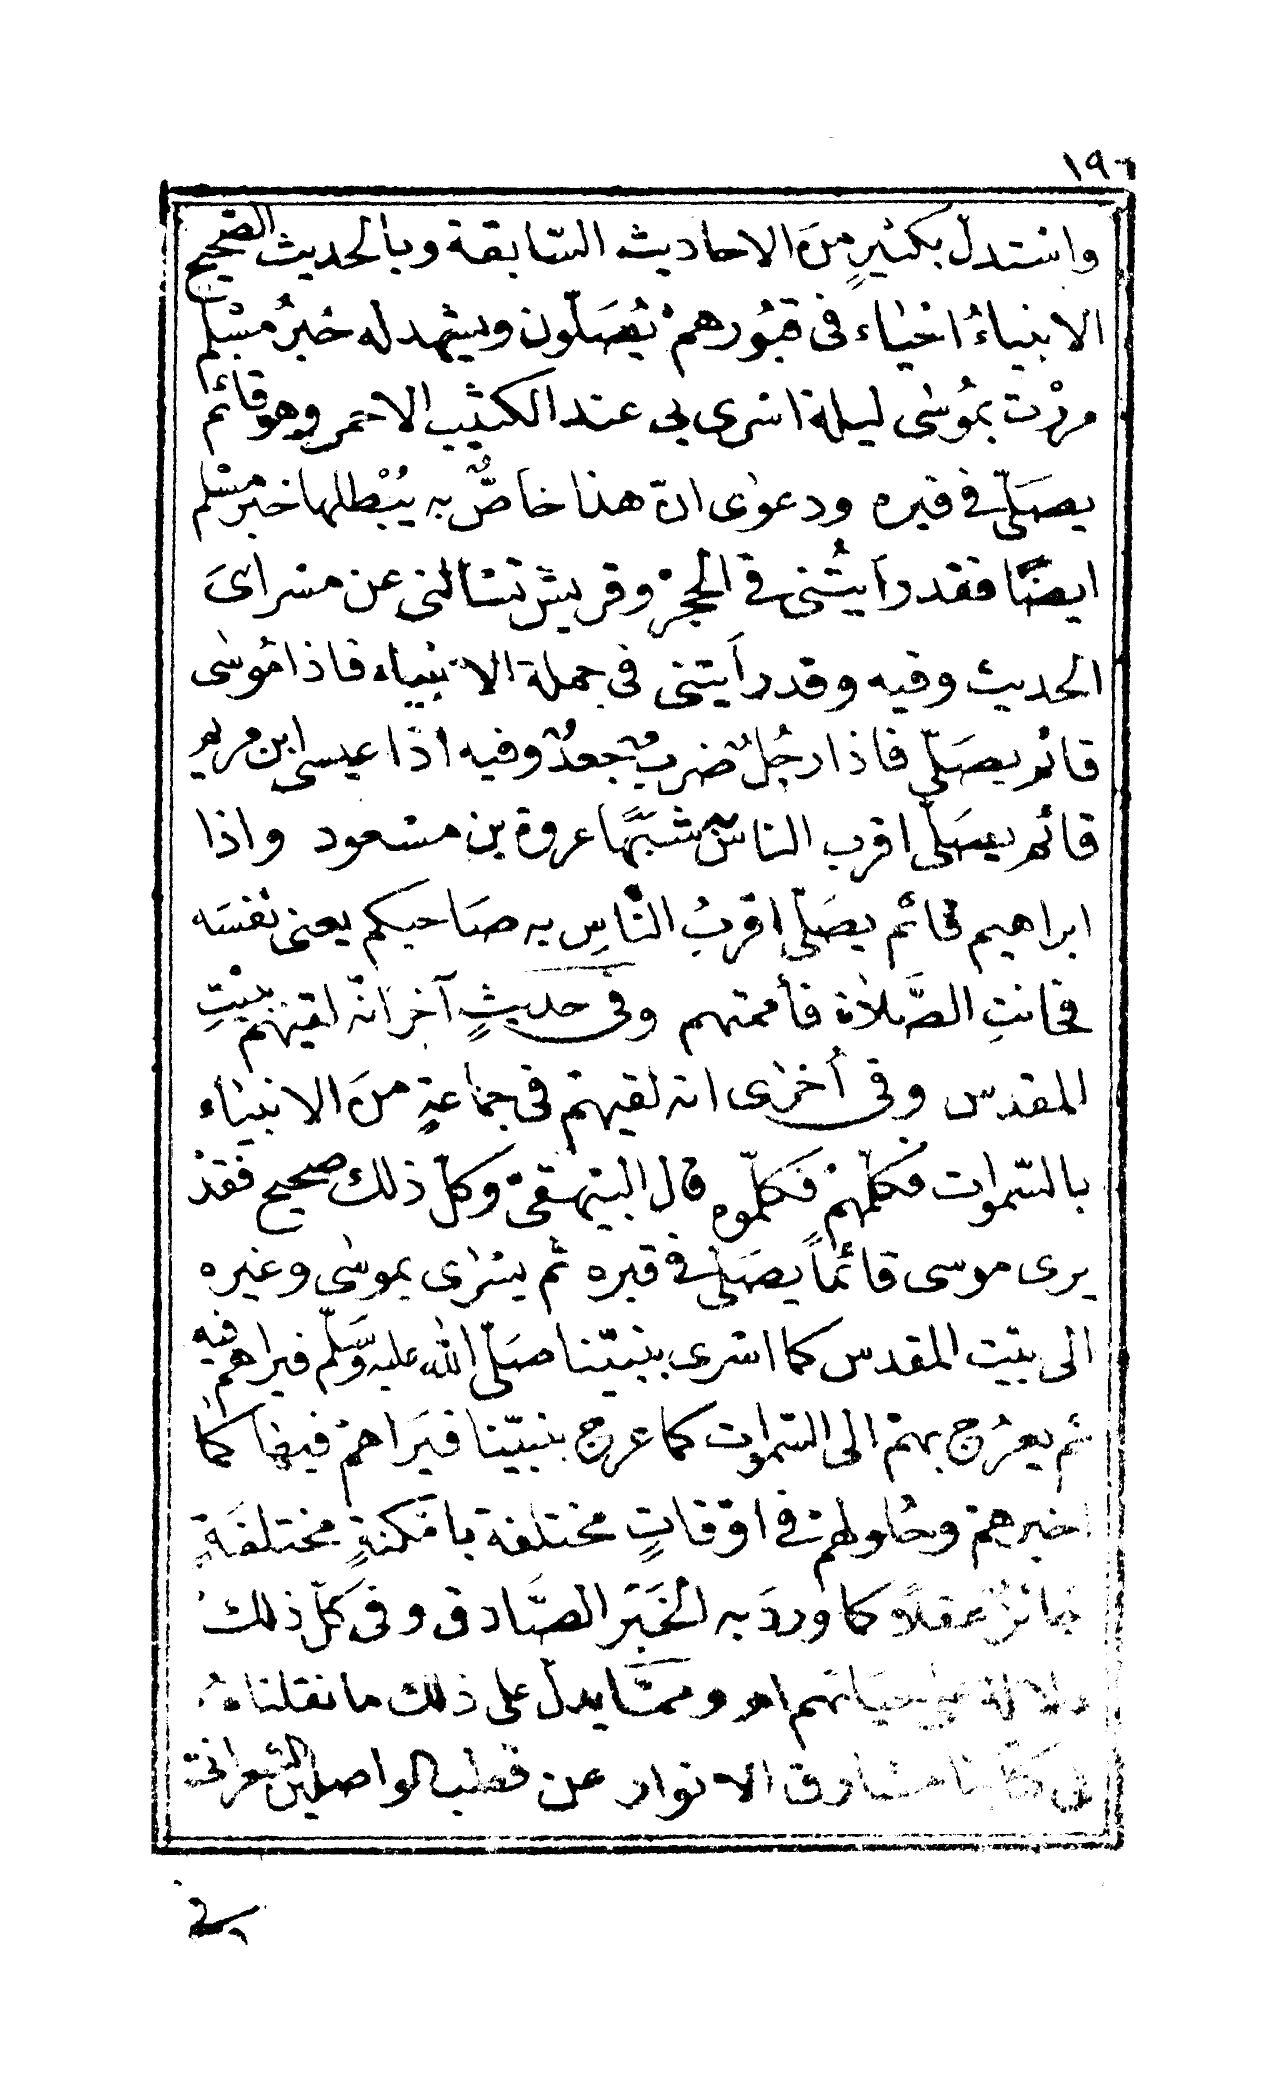 ١٩٦
واستدلّ بكثيرٍ منَ الاحاديث السّابقة وبالحديث الصّحيح
الانبياءُ احْياء فى قبُورهمْ يُصَلّون ويشهد له خبرُ مسْلم
مرْرت بمُوسٰى ليلة اسْرى بى عند الكثيب الاحمر وهو قائم
يصَلّى فى قبره ودعوٰى انّ هذا خاصٌّ به يُبْطلها خبر مسْلم
ايضًا فقد رأيتُنى فى الحجْر وقريشٌ تسْالنى عن مسراىَ
الحديث وفيه وقد رأيتنى فى جملة الانْبياء فاذا مُوسٰى
قائم يصَلّى فاذا رجُلٌ ضربٌ جعدٌ وفيه اذا عيسى ابن مريم
قائم يصَلّى اقرب الناس شبَهًا عروة بن مسْعود واذا
ابراهيم قائم يصَلّى اقربُ النّاسِ به صَاحبكم يعنى نفسَه
فحانتِ الصَّلاة فأممتهم وفى حديثٍ آخر انّه لقيهم ببيْتِ
المقدس وفى أخرٰى انه لقيهمْ فى جماعةٍ منَ الانبيَاء
بالسّموات فكلّمهمْ فكلّموه قال البيْهقىّ وكلّ ذلك صحيح فقدْ
يرى موسى قائماً يصَلّى فى قبره ثم يسْرٰى بموسٰى وغيره
الى بيْت المقدس كما اسْرى بنبيّنا صَلّى الله عليه وَسَلّم فيراهم فيه
ثم يعرُج بهمْ الى السّموات كما عرج بنبيّنا فيَراهمْ فيها كما
اخبرهمْ وحُلولهمْ فى اوْقاتٍ مختلفة بامْكنةٍ مختلفَةٍ
جَائزٌ عَقلاً كما وردَ به الخَبَر الصَّادق وفى كلّ ذلكَ
دلالة على حيَاتهم اهـ وممّا يدلّ على ذلك ما نقلناهُ
فى كتابنا مشارق الانوار عن قطب الواصلين الشعرانى
فى